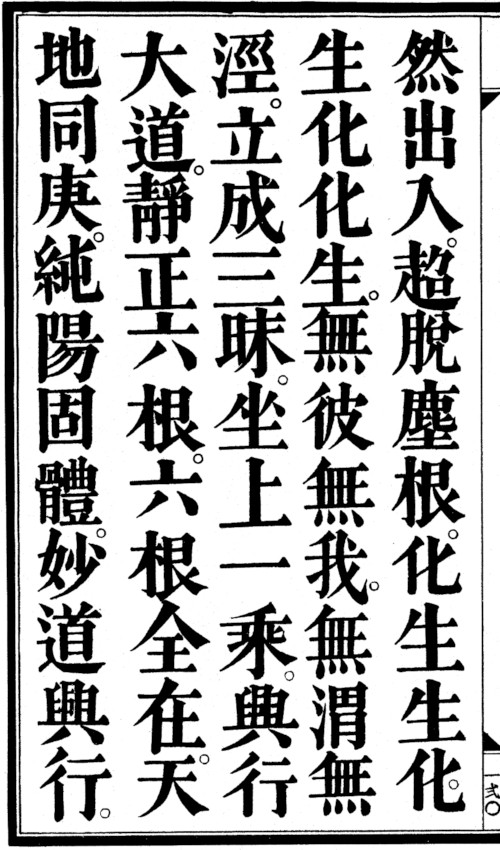 然出入。超脫塵根。化生生化。
生化化生。無彼無我。無渭無
涇。立成三昧。坐上一乘。興行
大道。靜正六根。六根全在天。
地同庚。純陽固體。妙道興行。
一弍〇